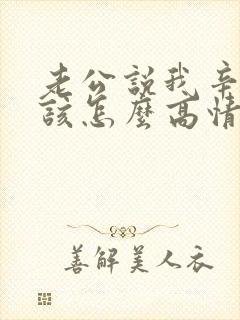 老公說我辛
該怎麼高情
善解美人衣